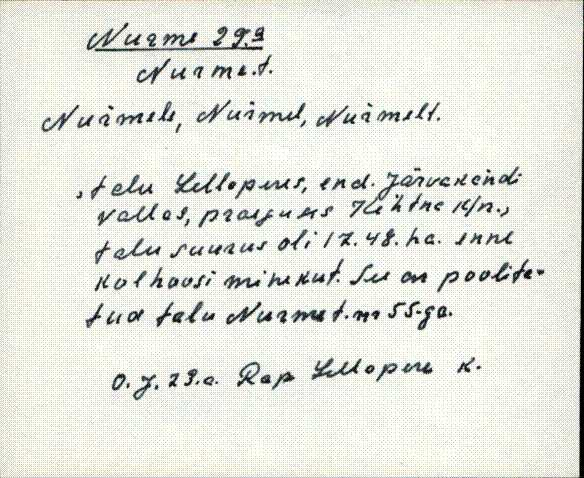 Nurme 29.a
Nurme t.
Nurmele, Nurmel, Nurmelt.
, talu Lellaperes, end. Järvakandi
vallas, praegune Kehtna k/n.,
talu suurus oli 17.48. ha. enne
kolhoosi minekut. See on poolita-
tud talu Nurme t. nr 55-ga.
O. J. 29.a. Rap Lellapere k.